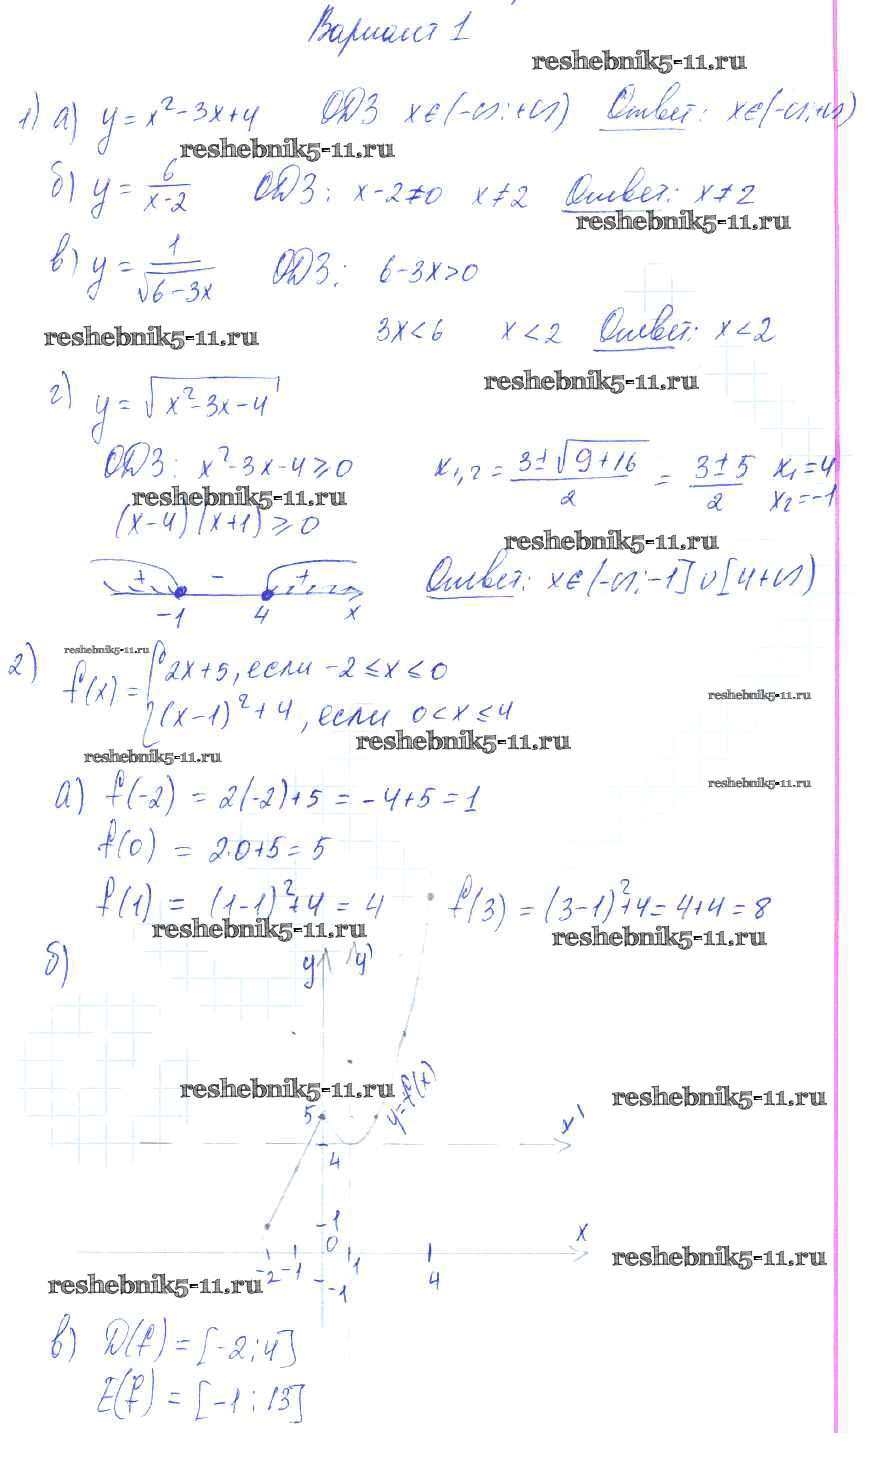 Вариант 1
reshebnik5-11.ru
1) а) y = x² - 3x + 4 ОДЗ x∈(-∞; +∞) Ответ: x∈(-∞; +∞)
reshebnik5-11.ru
б) y = 6/(x-2) ОДЗ: x-2≠0 x≠2 Ответ: x≠2
reshebnik5-11.ru
в) y = 1/√(6-3x) ОДЗ: 6-3x>0
reshebnik5-11.ru 3x<6 x<2 Ответ: x<2
reshebnik5-11.ru
г) y = √(x²-3x-4)
ОДЗ: x²-3x-4⩾0 x₁,₂ = (3±√(9+16))/2 = (3±5)/2 x₁=4 x₂=-1
reshebnik5-11.ru
(x-4)(x+1)⩾0
reshebnik5-11.ru
+ - +
-1 4 x
Ответ: x∈(-∞;-1]∪[4+∞)
reshebnik5-11.ru
2) f(x) = { 2x+5, если -2≤x≤0
reshebnik5-11.ru
(x-1)²+4, если 0<x≤4
reshebnik5-11.ru
reshebnik5-11.ru
reshebnik5-11.ru
а) f(-2) = 2(-2)+5 = -4+5 = 1
f(0) = 2·0+5 = 5
f(1) = (1-1)²+4 = 4 f(3) = (3-1)²+4 = 4+4 = 8
reshebnik5-11.ru reshebnik5-11.ru
б) y y'
reshebnik5-11.ru y=f(x) reshebnik5-11.ru
5 x'
4
-1 x
0
reshebnik5-11.ru
-2 -1 1 4
reshebnik5-11.ru -1
в) D(f) = [-2; 4]
E(f) = [-1; 13]